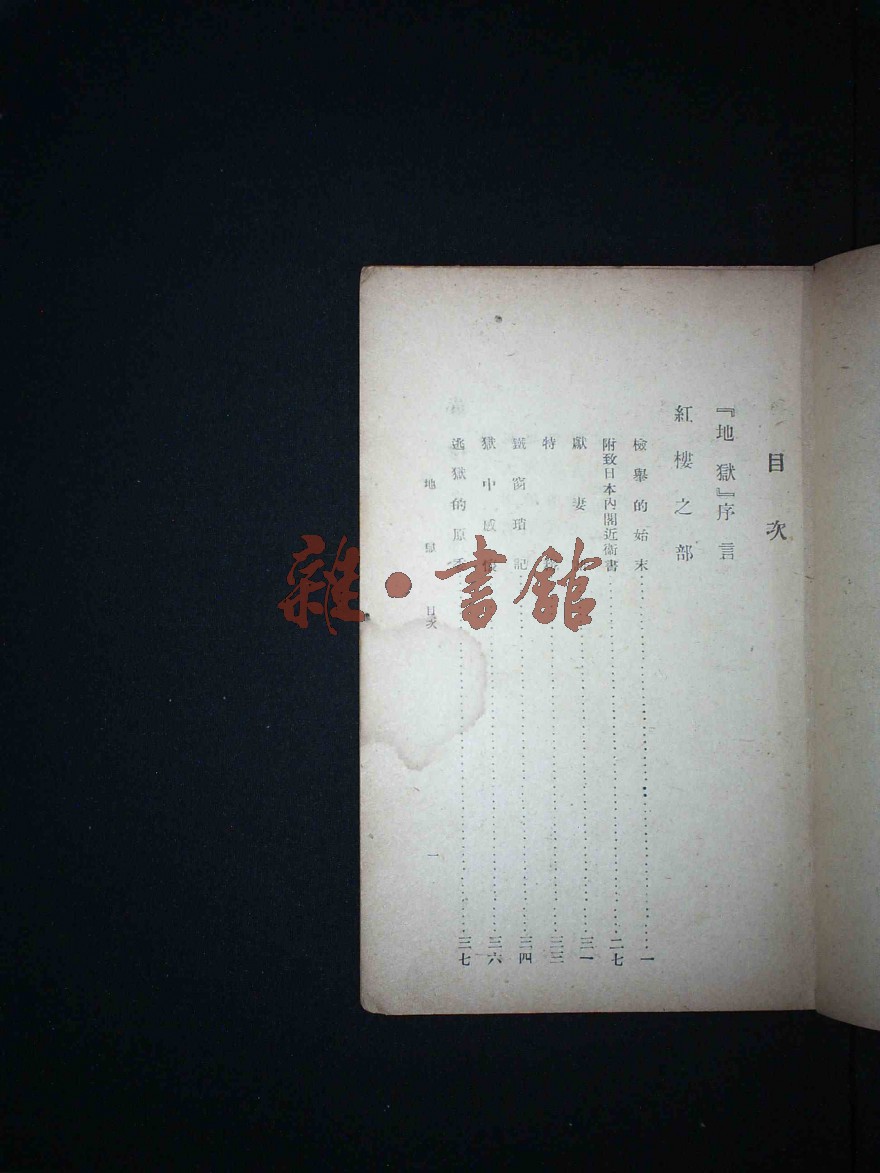 目次
『地獄』序言
紅樓之部
檢舉的始末……一
附致日本內閣近衞書……二七
獻妻……三一
特……三三
鐵窗瑣記……三四
獄中感……三六
逃獄的原……三七
地獄 目次 一
雜·書館